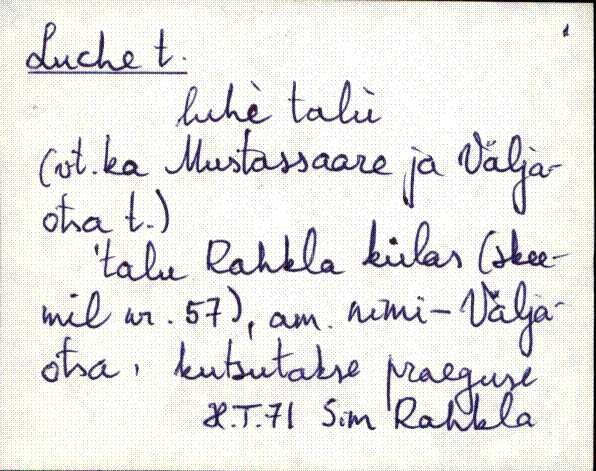 Luche t.
luhè talù
(vt. ka Mustassaare ja Välja-
otsa t.)
'talu Rahkla külas (skee-
mil nr. 57), am. nimi - Välja-
otsa, kutsutakse praeguse
H.T. 71 Sim Rahkla